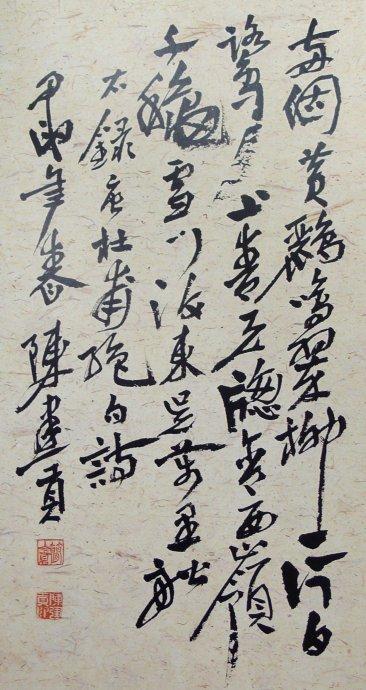 兩個黃鸝鳴翠柳一行白
鷺上青天窗含西嶺
千秋雪門泊東吳萬里船
右錄唐杜甫絕句詩
甲申年春陳建貢